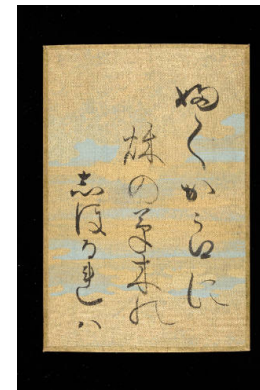 婦くからに
秌の草木の
志ほるれハ